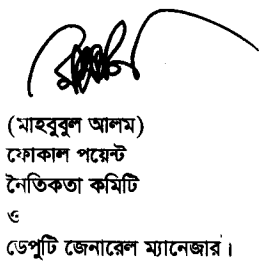 (মাহবুবুল আলম)
ফোকাল পয়েন্ট
নৈতিকতা কমিটি
ও
ডেপুটি জেনারেল ম্যানেজার।